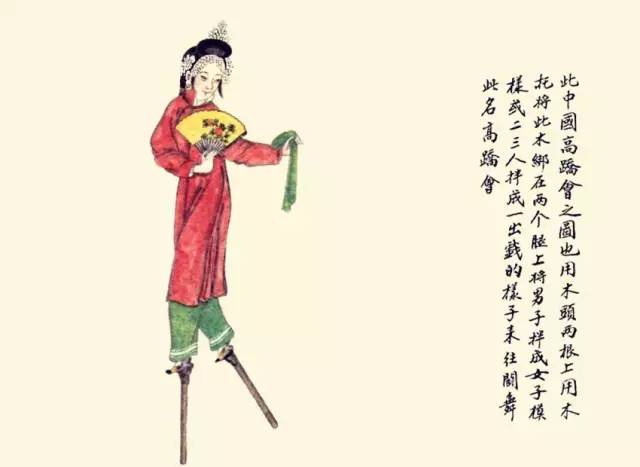 此中國高蹻會之圖也用木頭两根上用木
托将此木綁在两个腿上将男子拌成女子模
樣或二三人拌成一出戲的樣子来往舞
此名高蹻會